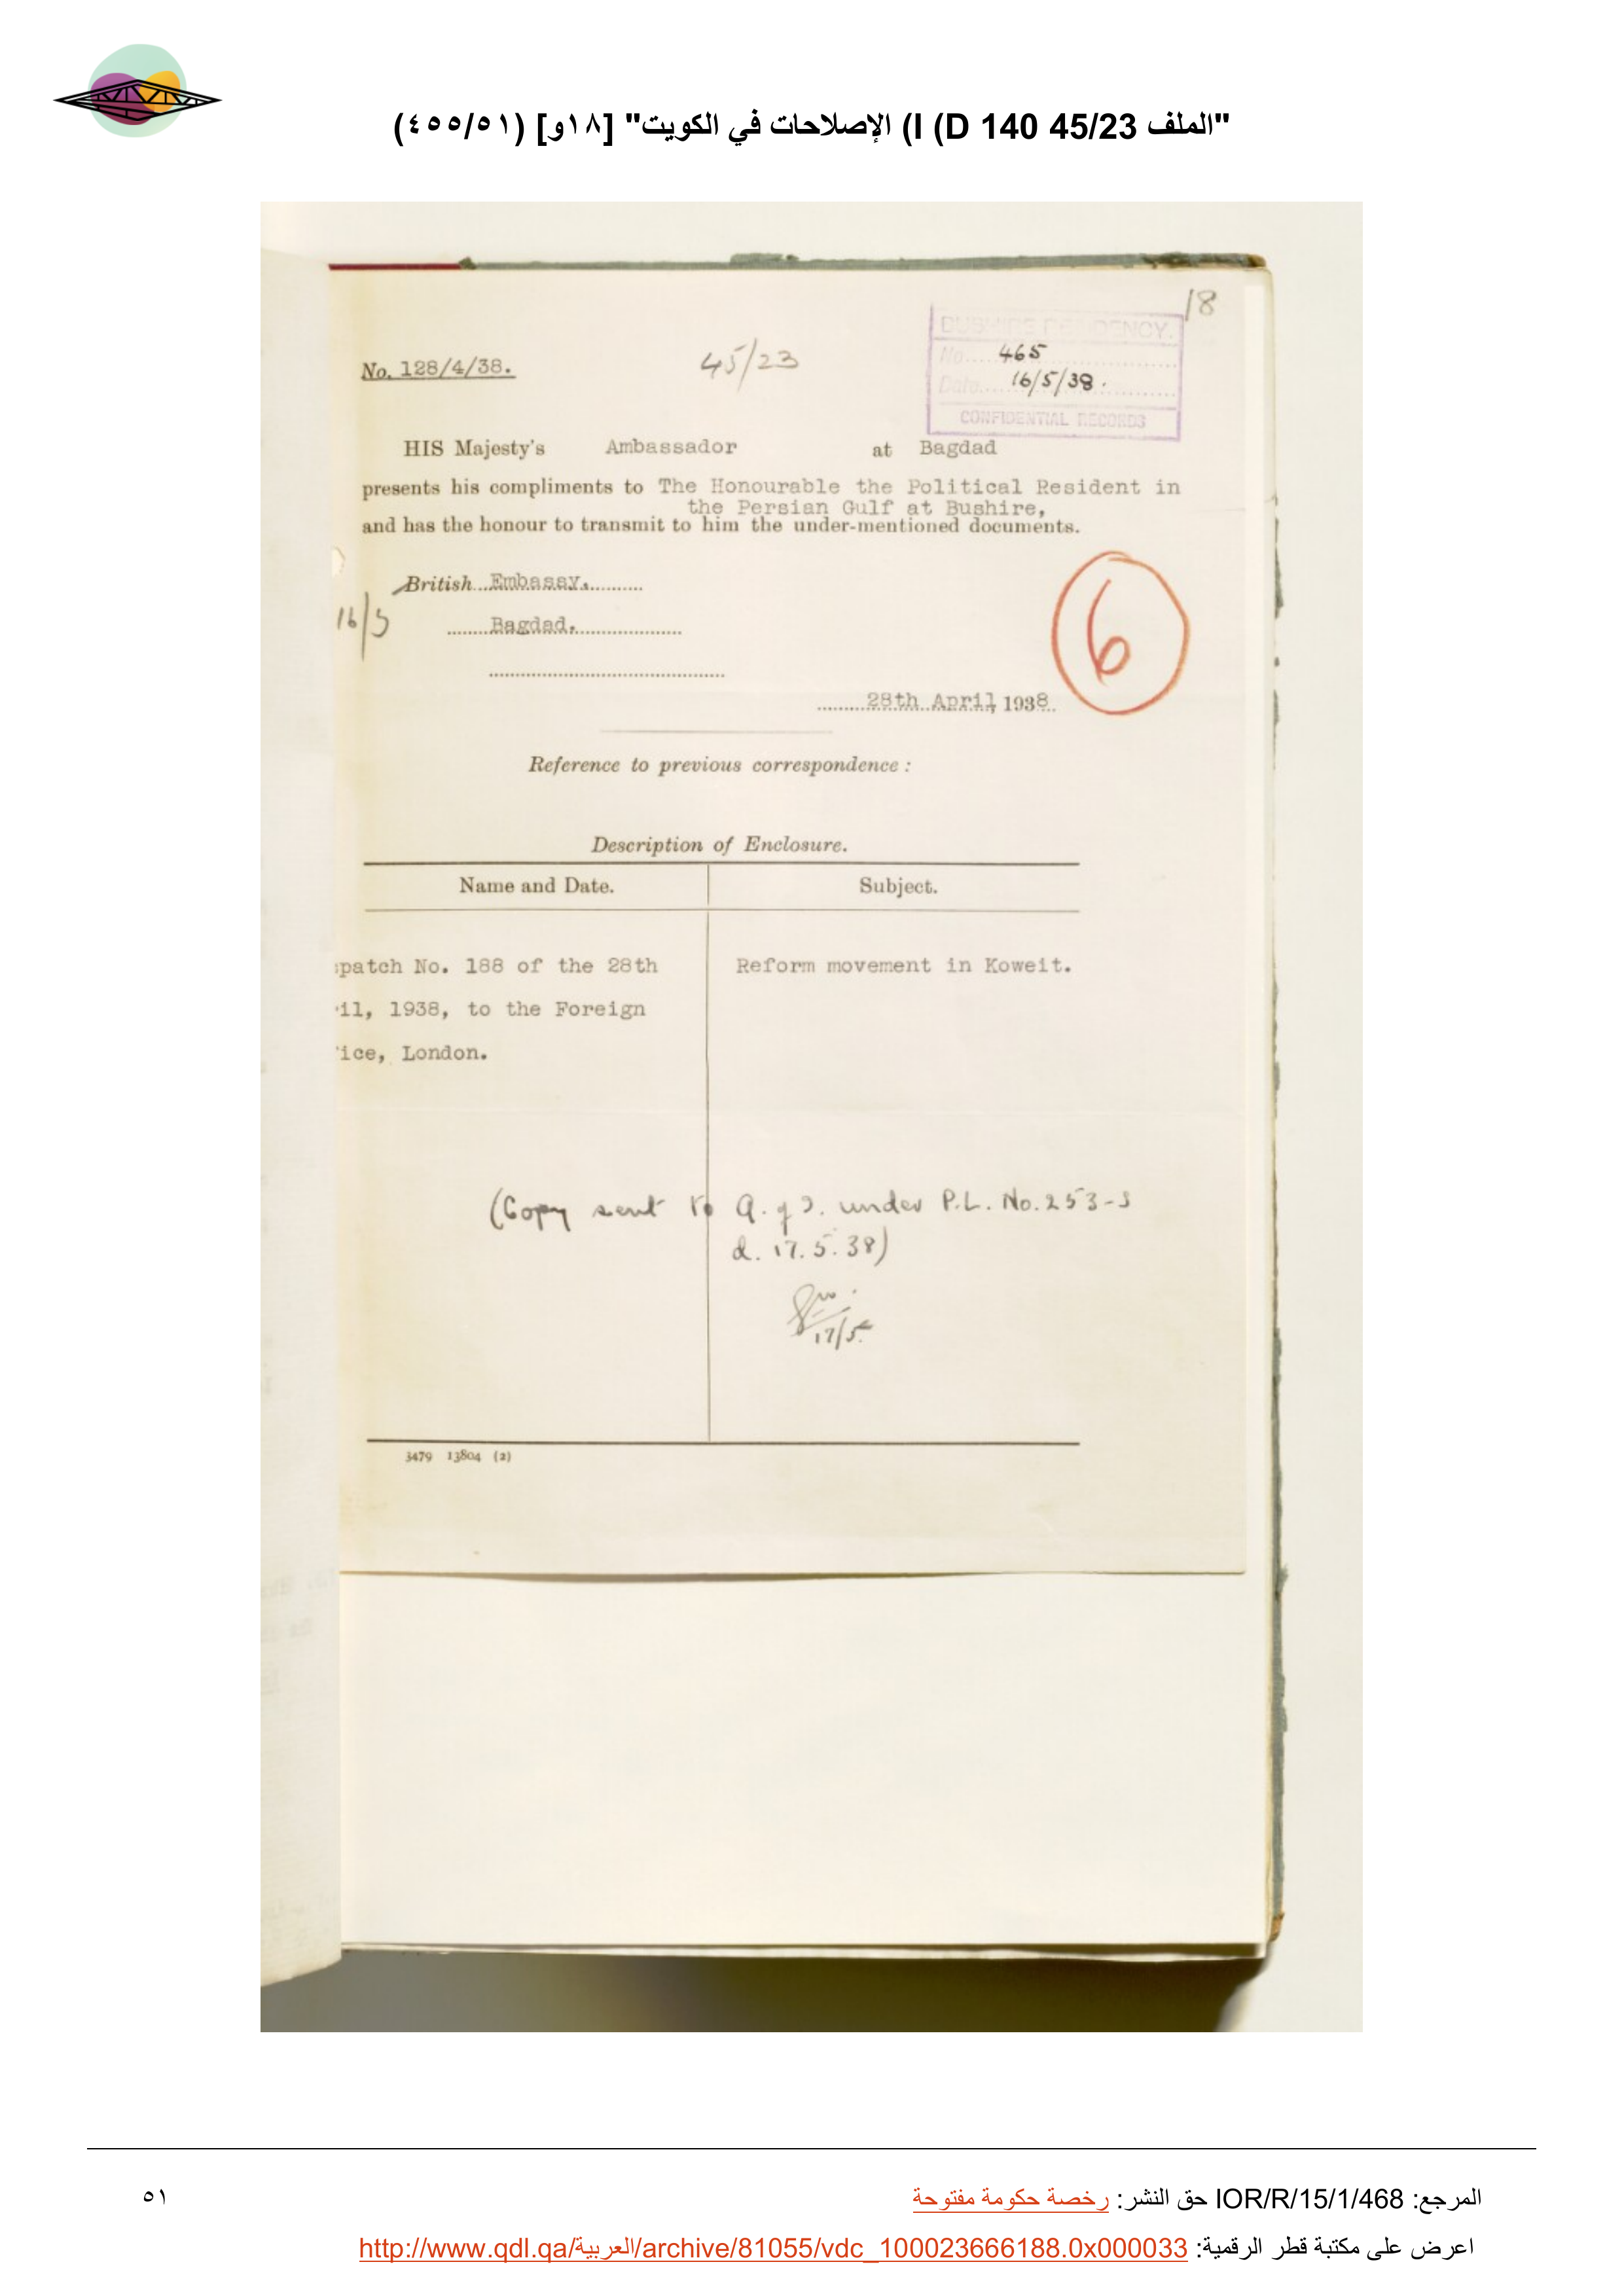 "الملف 45/23 I (D 140) الإصلاحات في الكويت" [١٨و] (٤٥٥/٥١)
18
BUSHIRE RESIDENCY.
No. 465
Date 16/5/38.
CONFIDENTIAL RECORDS
No. 128/4/38.
45/23
HIS Majesty's Ambassador at Bagdad
presents his compliments to The Honourable the Political Resident in
the Persian Gulf at Bushire,
and has the honour to transmit to him the under-mentioned documents.
British Embassy.
16/5
Bagdad.
6
28th April, 1938.
Reference to previous correspondence :
Description of Enclosure.
Name and Date.
Subject.
spatch No. 188 of the 28th
Reform movement in Koweit.
ril, 1938, to the Foreign
ice, London.
(Copy sent to under P.L. No. 253-S
d. 17.5.38)
17/5
3479 13804 (2)
المرجع: IOR/R/15/1/468 حق النشر: رخصة حكومة مفتوحة
٥١
اعرض على مكتبة قطر الرقمية: http://www.qdl.qa/العربية/archive/81055/vdc_100023666188.0x000033